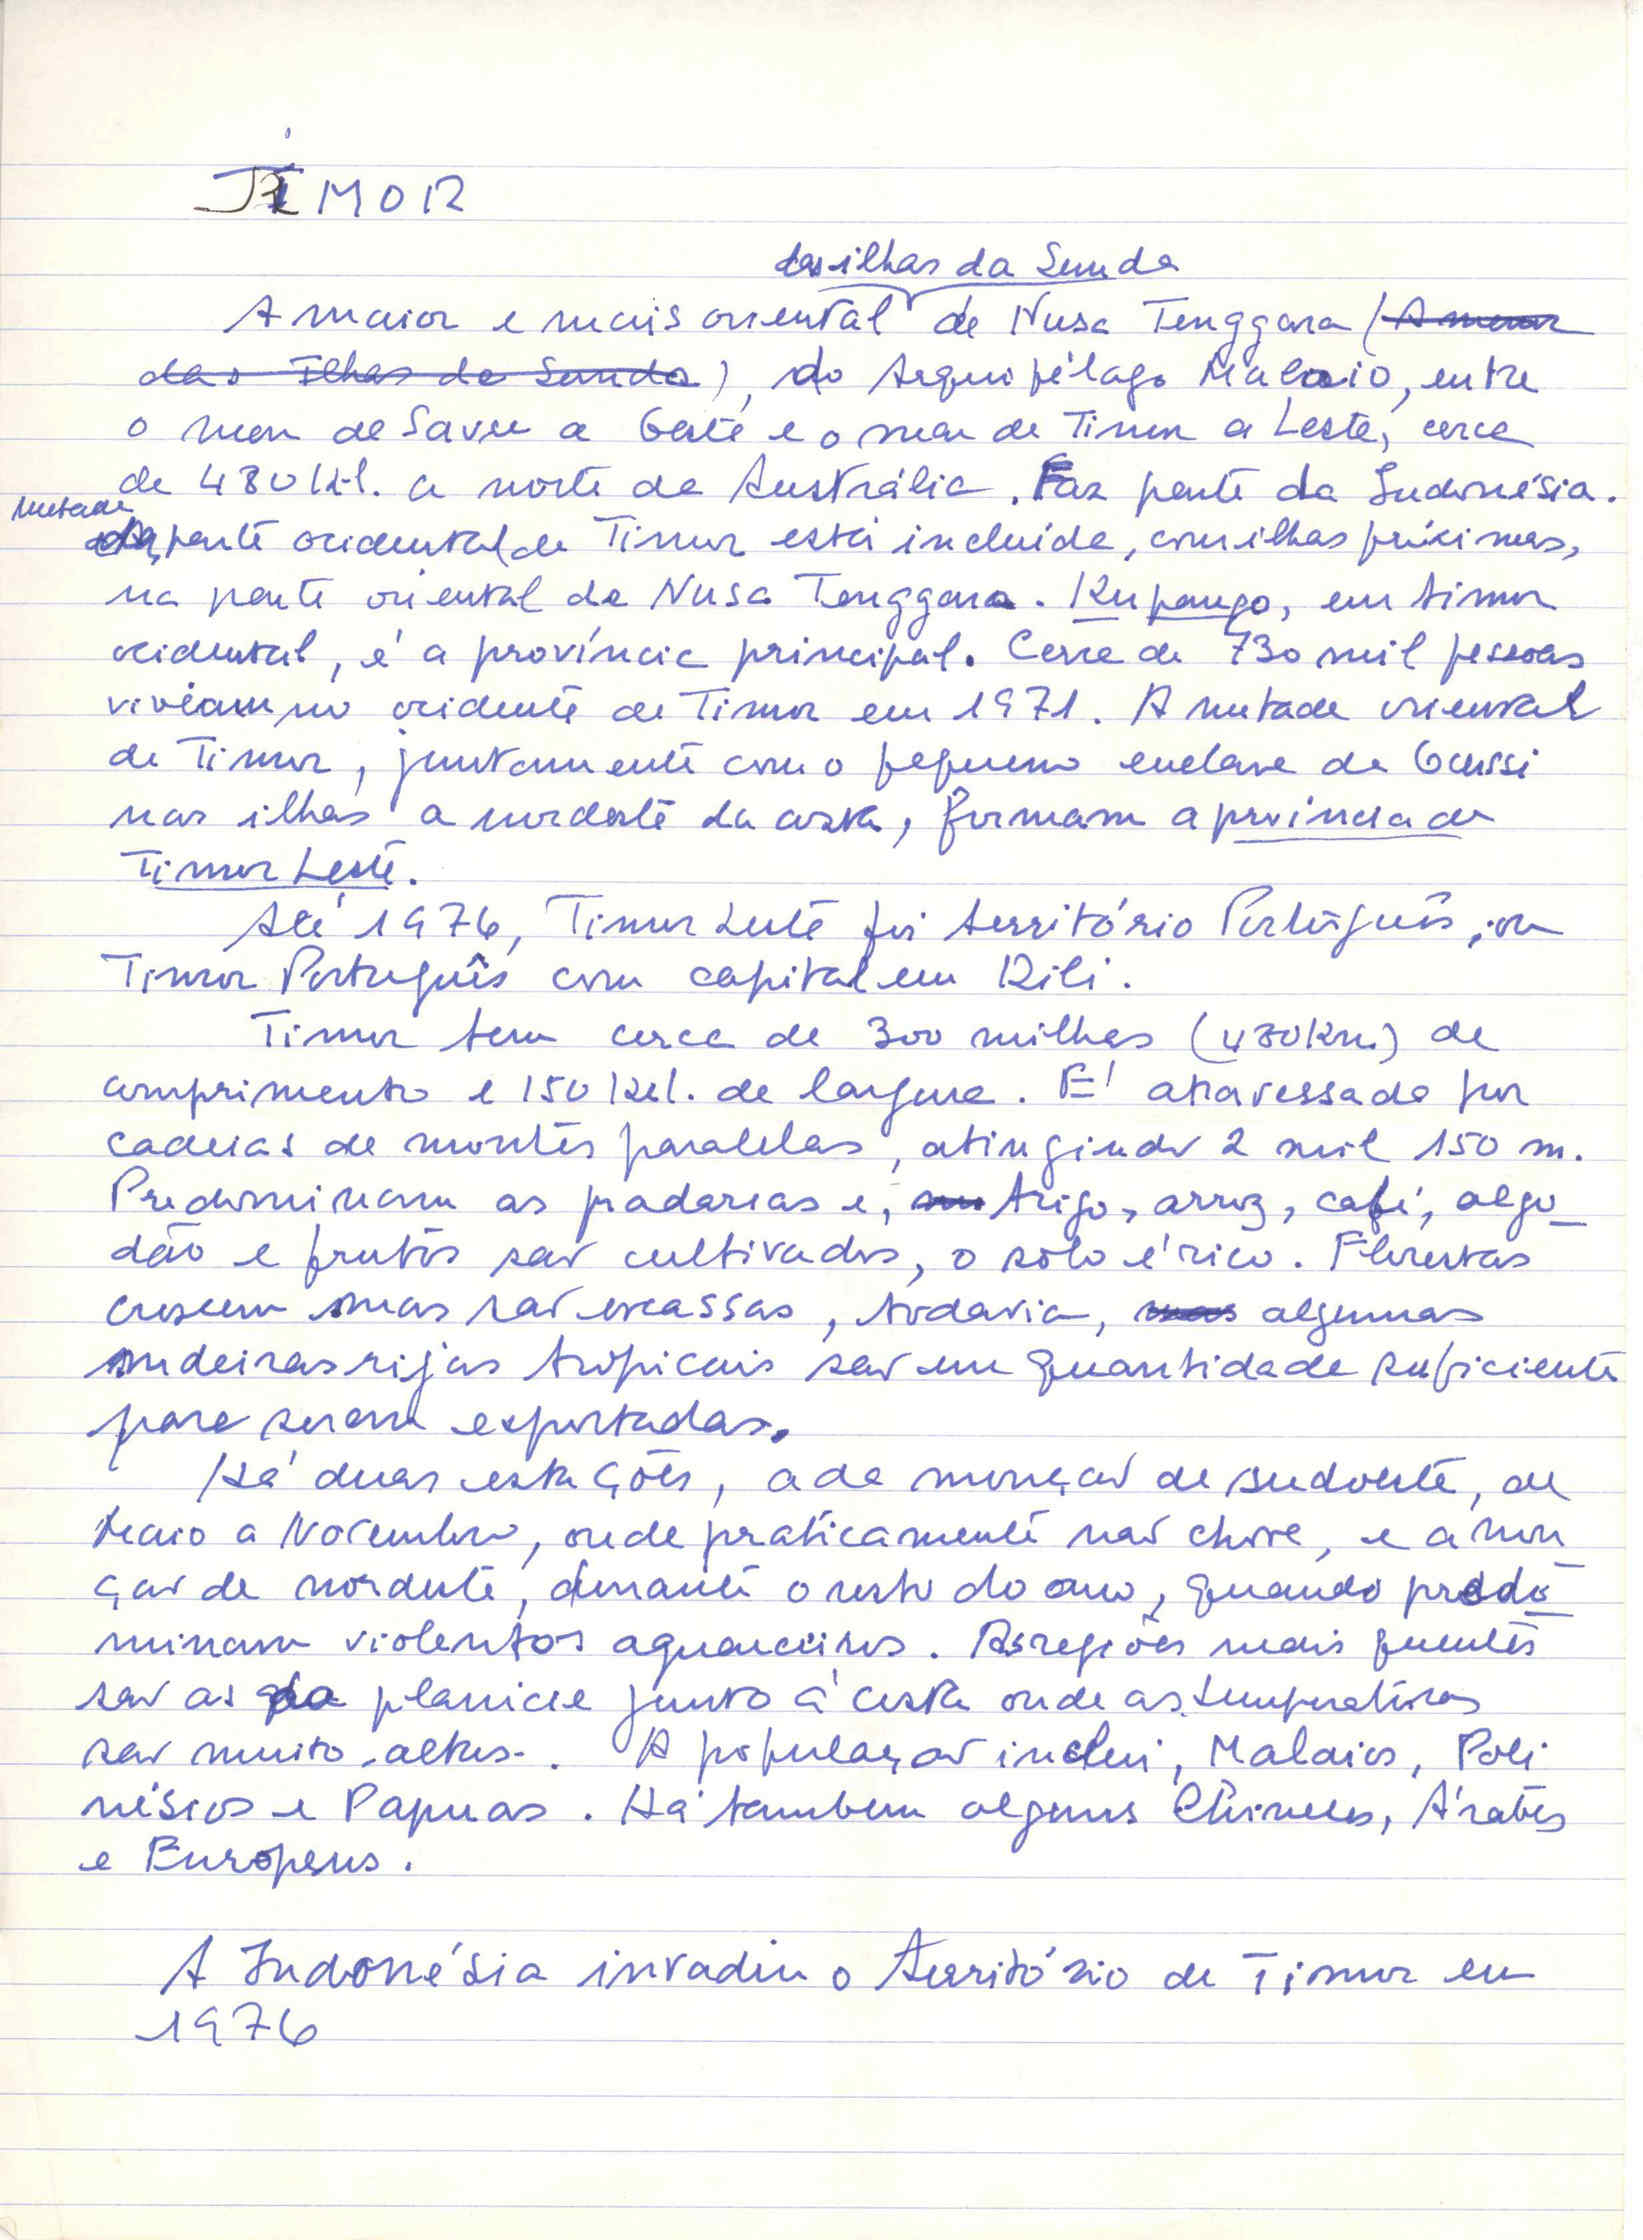 TIMOR
das ilhas da Sunda
A maior e mais oriental de Nusa Tenggara (A menor
das Ilhas de Sunda), do Arquipélago Malaio, entre
o mar de Savu a Oeste e o mar de Timor a Leste, cerca
de 480 Kl. a norte da Austrália. Faz parte da Indonésia.
Metade
da parte ocidental de Timor está incluida, com ilhas próximas,
na parte oriental de Nusa Tenggara. Kupango, em timor
ocidental, é a província principal. Cerca de 730 mil pessoas
viviam no ocidente de Timor em 1971. A metade oriental
de Timor, juntamente com o pequeno enclave de Ocussi
nas ilhas a nordeste da costa, formam a província de
Timor Leste.
Até 1976, Timor Leste foi território Português, ou
Timor Português com capital em Dili.
Timor tem cerca de 300 milhas (480 Km) de
comprimento e 150 Kl. de largura. É atravessado por
cadeias de montes paralelas, atingindo 2 mil 150 m.
Predominam as pradarias e, trigo, arroz, café, algo_
dão e frutos são cultivados, o solo é rico. Florestas
crescem mas são escassas, todavia, mas algumas
madeiras rijas tropicais são em quantidade suficiente
para serem exportadas.
Há duas estações, a da monção de sudoeste, de
Maio a Novembro, onde praticamente não chove, e a mon
ção de nordeste, durante o resto do ano, quando predo_
minam violentos aguaceiros. As regiões mais quentes
são as da planicie junto á costa onde as temperaturas
são muito altas. A população inclui, Malaios, Poli
nésios e Papuas. Há tambem alguns Chineses, Árabes
e Europeus.
A Indonésia invadiu o território de Timor em
1976